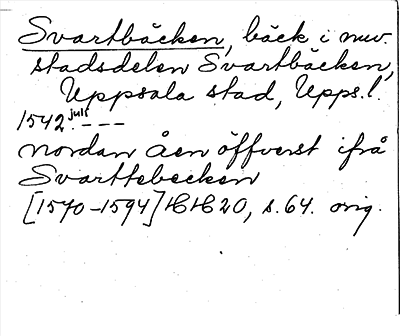 Svartbäcken, bäck i nuv.
stadsdelen Svartbäcken,
Uppsala stad, Upps.l.
1542 juli - - -
nordan åen öffverst ifrå
Svarttebecken
[1570-1594] HH 20, s. 64. orig.